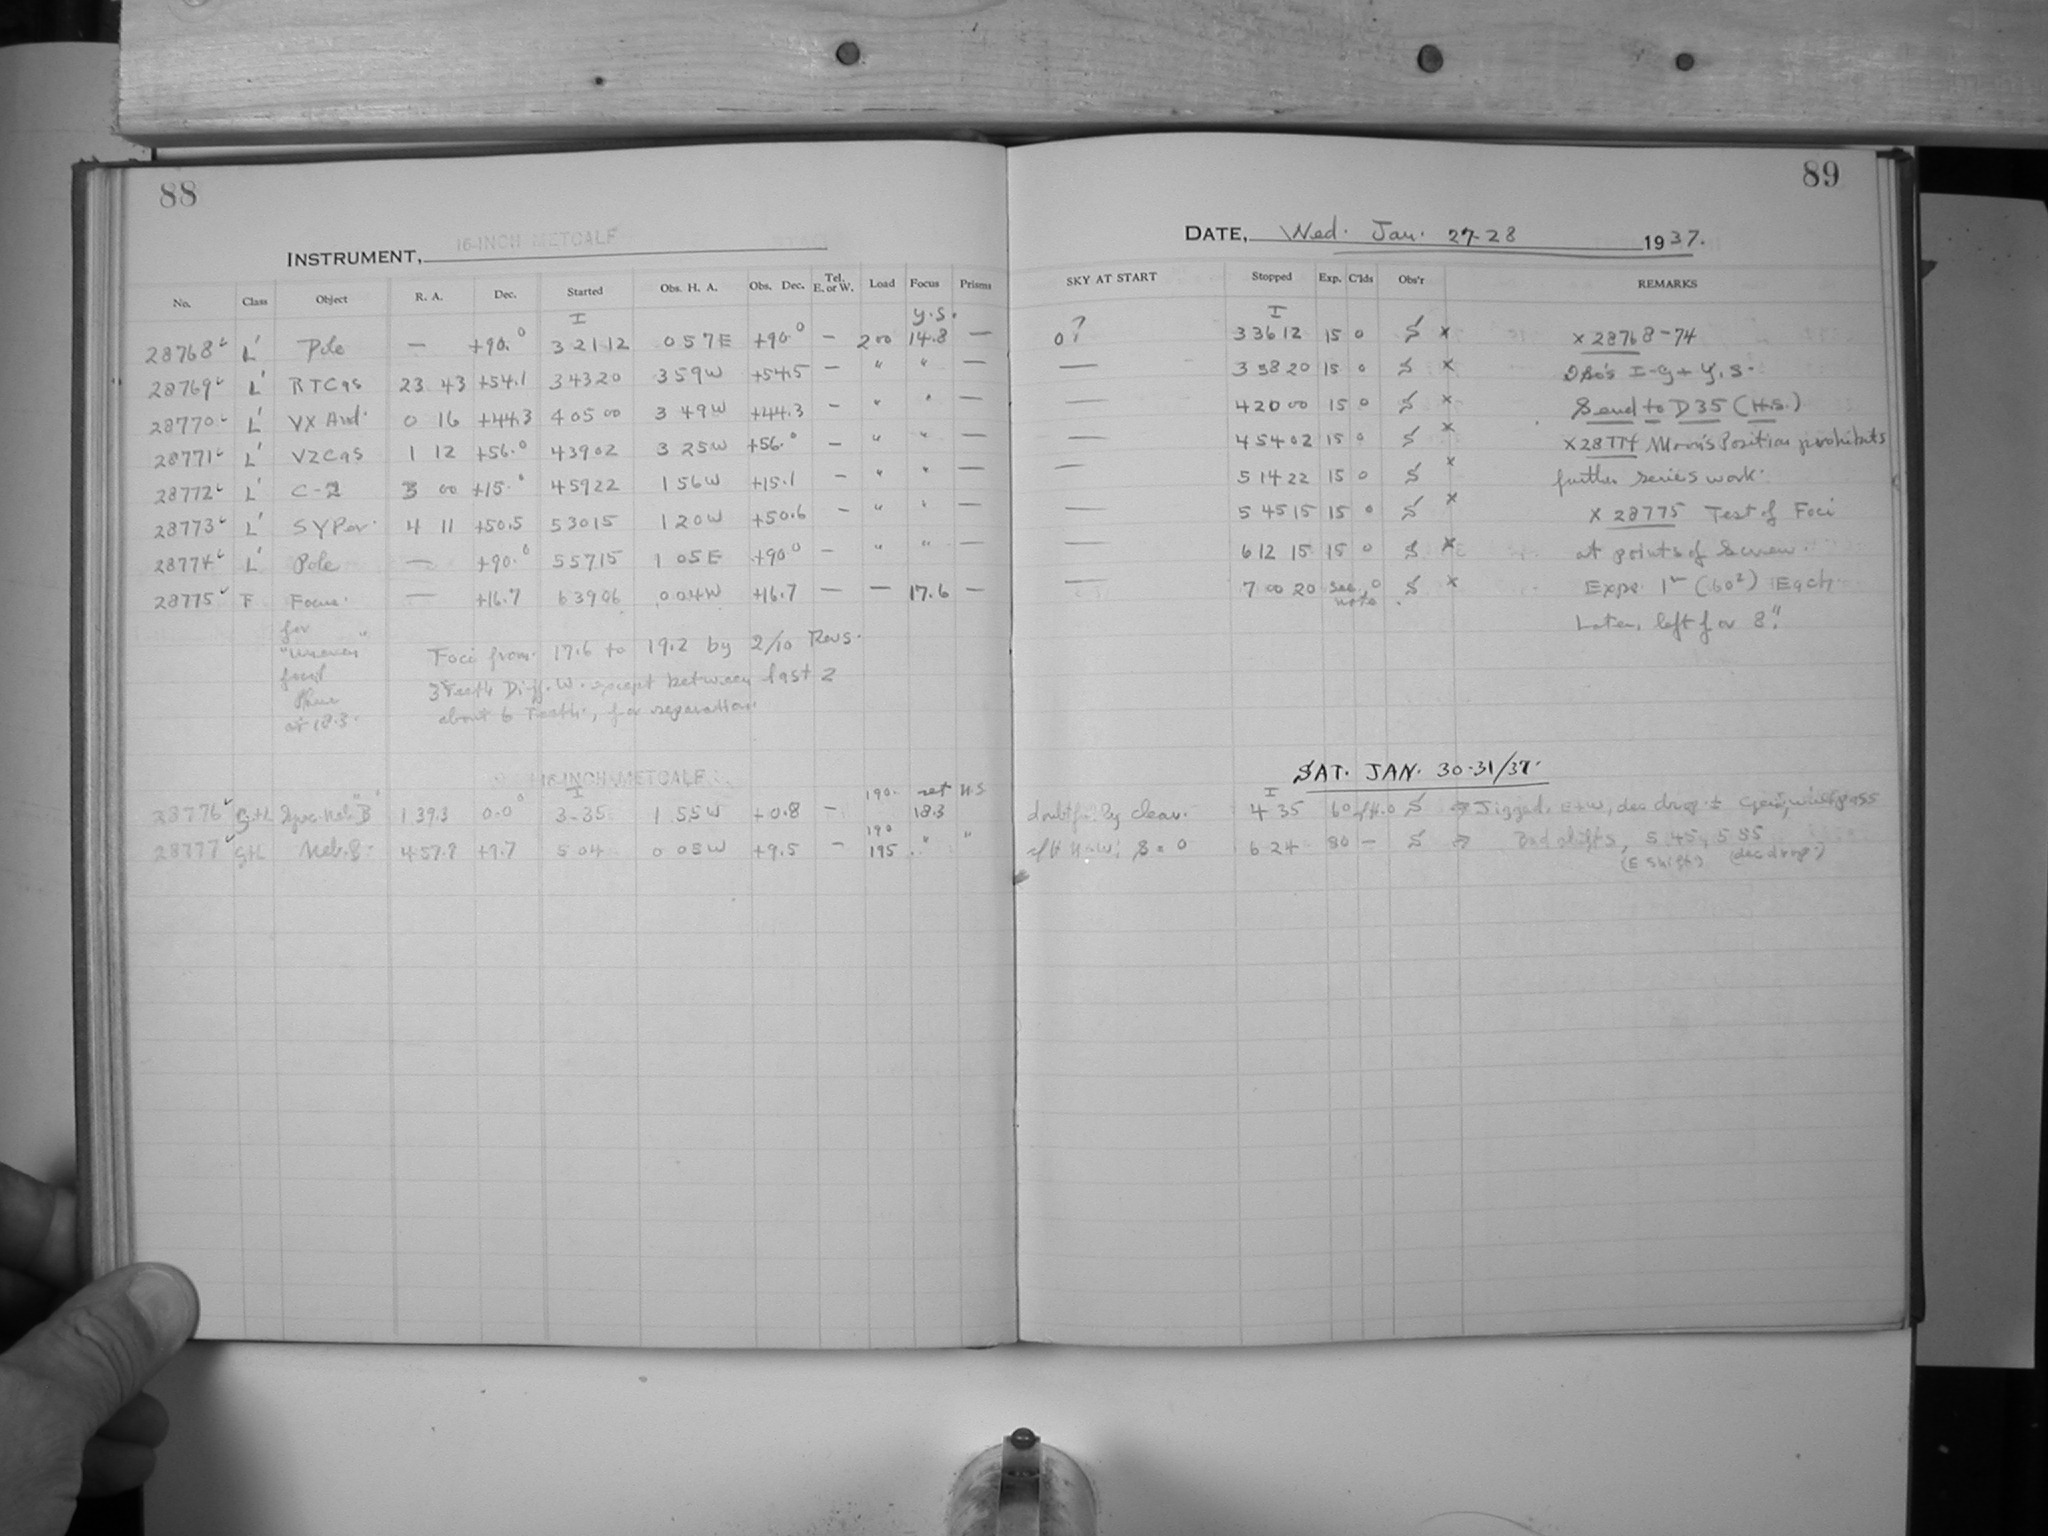 88
INSTRUMENT, 16-INCH METCALF
No. Class Object R. A. Dec. Started Obs. H. A. Obs. Dec. Tel. E. or W. Load Focus Prisms
I Y.S.
28768 L' Pole — +90.° 3 21 12 0 57E +90.° — 200 14.8 —
28769 L' RTCas 23 43 +54.1 3 43 20 3 59W +54.5 — " " —
28770 L' VX And. 0 16 +44.3 4 05 00 3 49W +44.3 — " " —
28771 L' VZCas 1 12 +56.0 4 39 02 3 25W +56.0 — " " —
28772 L' C-2 3 00 +15.0 4 59 22 1 56W +15.1 — " " —
28773 L' SYPer. 4 11 +50.5 5 30 15 1 20W +50.6 — " " —
28774 L' Pole — +90.° 5 57 15 1 05E +90° — " " —
28775 F Focus. — +16.7 6 39 06 0 04W +16.7 — — 17.6 —
for
"uneven"
focal
Plane
at 18.3.
Foci from 17.6 to 19.2 by 2/10 Revs.
3 Teeth Diff. W. except between last 2
about 6 Teeth, for separation.
16-INCH METCALF
I 190. ret H.S.
28776 G+L "B" 1 39.3 0.0° 3-35 1 55W +0.8 — 18.3
28777 G+L Neb. 4 57.7 +9.7 5 04 0 05W +9.5 — 190 195 " "
89
DATE, Wed. Jan. 27-28 1937.
SKY AT START Stopped Exp. C'lds Obs'r REMARKS
I
0? 3 36 12 15 0 S × × 28768-74
— 3 58 20 15 0 S × I-G + Y.S.
— 4 20 00 15 0 S × Send to D35 (H.S.)
— 4 54 02 15 0 S × × 28774 Moon's Position prohibits
— 5 14 22 15 0 S × further series work.
— 5 45 15 15 0 S × × 28775 Test of Foci
— 6 12 15 15 0 S × at points of Screw.
— 7 00 20 see note 0 S × Expo. (60 ) Each.
Later, left for 8."
SAT. JAN. 30-31/37.
I
doubtfully clear. 4 35 60 S Jigged, E+W, dec drop ±
S = 0 6 24 80 — S Bad shifts, 5 45, 5 55
(E shift) (dec drop)